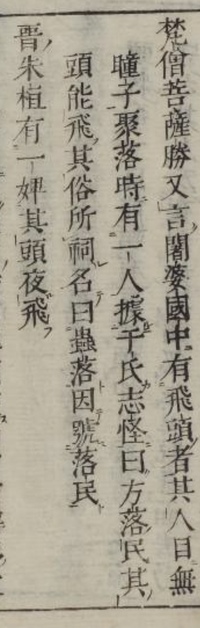 梵僧菩薩勝又言闍婆國中有飛頭者其人目無
瞳子聚落時有一人據于氏志怪曰方落民其
頭能飛其俗所祠名曰蟲落因號落民
晉朱植有一婢其頭夜飛